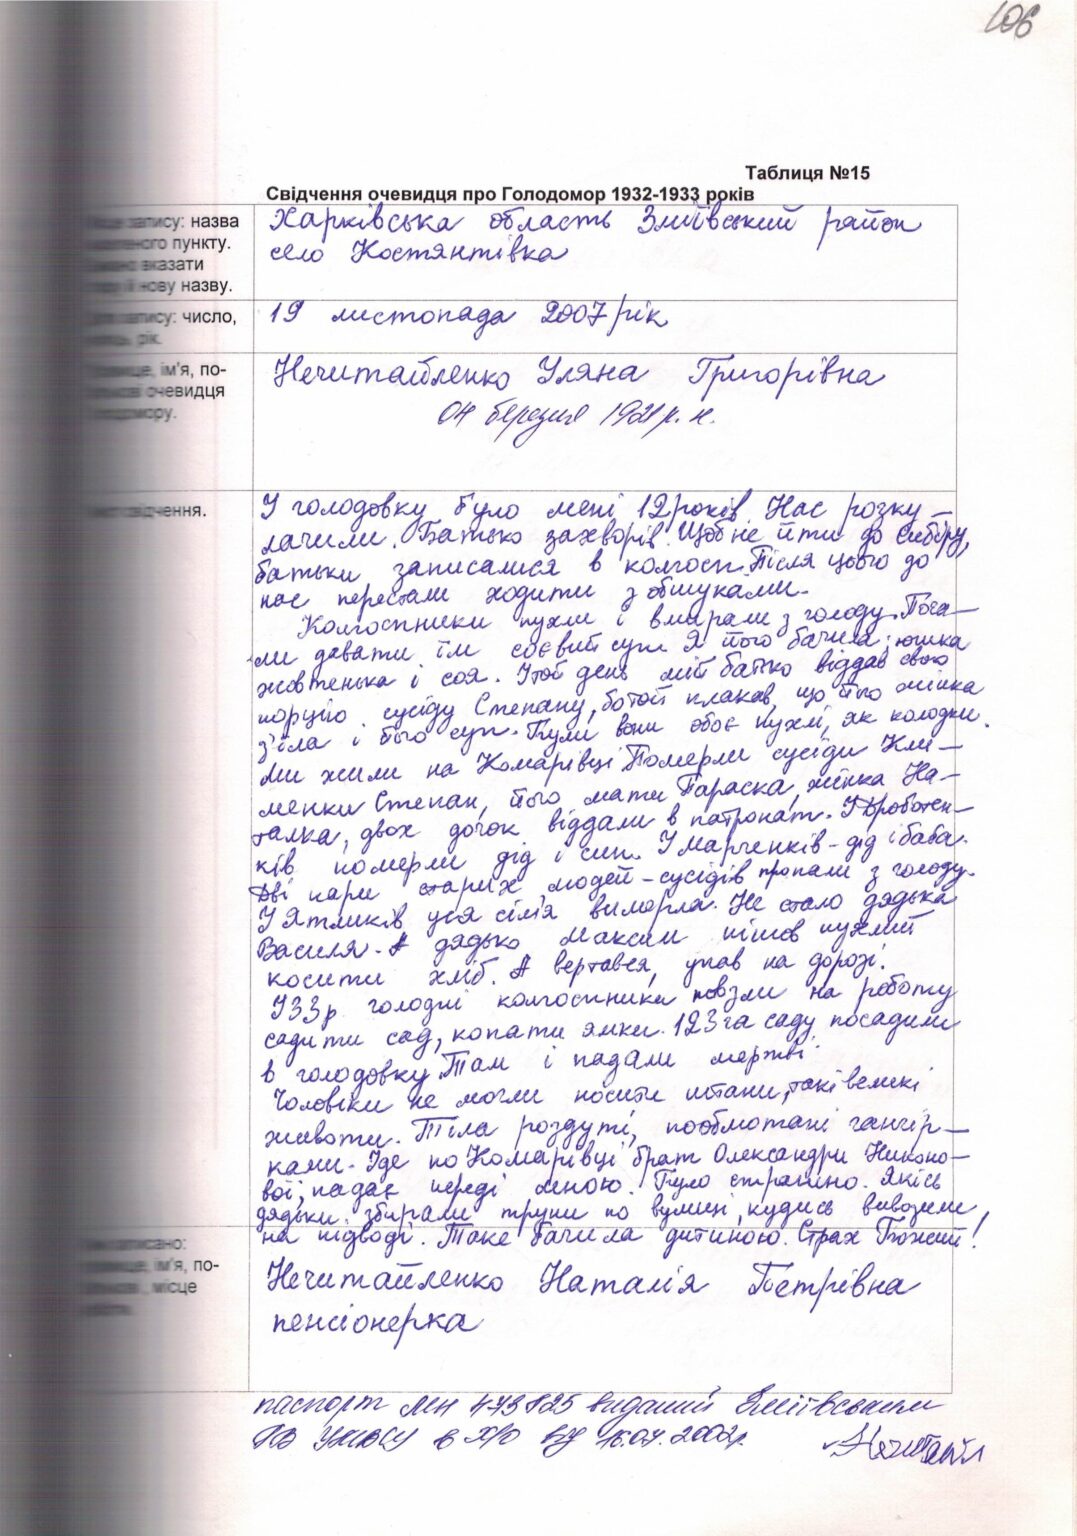 106
Таблиця №15
Свідчення очевидця про Голодомор 1932-1933 років
запису: назва
пункту.
вказати
нову назву.
Харківська область Зміївський район
село Костянтівка
запису: число,
рік.
19 листопада 2007 рік
ім'я, по-
очевидця
Нечитайленко Уляна Григорівна
04 березня 1921 р. н.
свідчення.
У голодовку було мені 12 років. Нас розку–
лачили. Батько захворів. Щоб не йти до Сибіру,
батьки записалися в колгосп. Після цього до
нас перестали ходити з обшуками.
Колгоспники пухли і вмирали з голоду. Поча–
ли давати їм соєвий суп. Я його бачила: юшка
жовтенька і соя. У той день мій батько віддав свою
порцію сусіду Степану, бо той плакав, що його жінка
з'їла і його суп. Були вони обоє пухлі, як колодки.
Ми жили на Комарівці. Померли сусіди Кли–
менки Степан, його мати Параска, жінка На–
талка, двох дочок віддали в патронат. У Дроботен–
ків померли дід і син. У Марченків – дід і баба.
Дві пари старих людей – сусідів пропали з голоду.
У Ятликів уся сім'я вимерла. Не стало дядька
Василя. А дядько Максим пішов пухлий
косити хліб. А вертався, упав на дорозі.
У 33 р. голодні колгоспники повзли на роботу
садити сад, копати ямки. 123 га саду посадили
в голодовку. Там і падали мертві.
Чоловіки не могли носити штани, такі великі
животи. Тіла роздуті, пообмотані ганчір–
ками. Іде по Комарівці брат Олександри Никоно–
вої, падає переді мною. Було страшно. Якісь
дядьки збирали трупи по вулиці, кудись вивозили
на підводі. Таке бачила дитиною. Страх Божий!
записано:
ім'я, по-
місце
Нечитайленко Наталія Петрівна
пенсіонерка
паспорт МН 473825 виданий Зміївським
РВ УМВСУ в Х/О від 16.07.2002р.